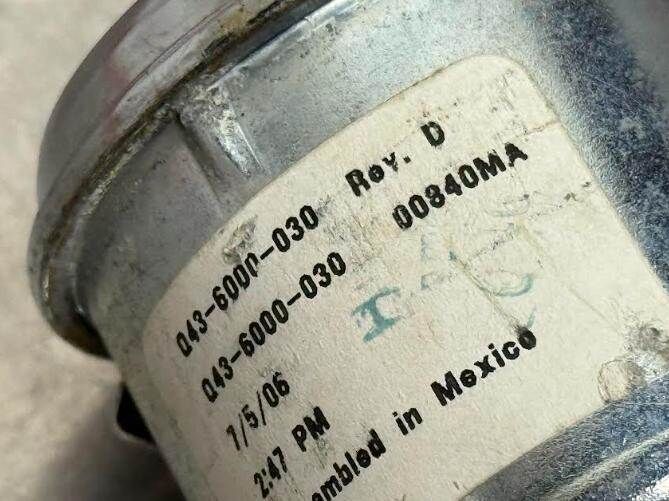 Q43-6000-030 Rev. D
Q43-6000-030 00840MA
7/5/06
2:47 PM
embled in Mexico